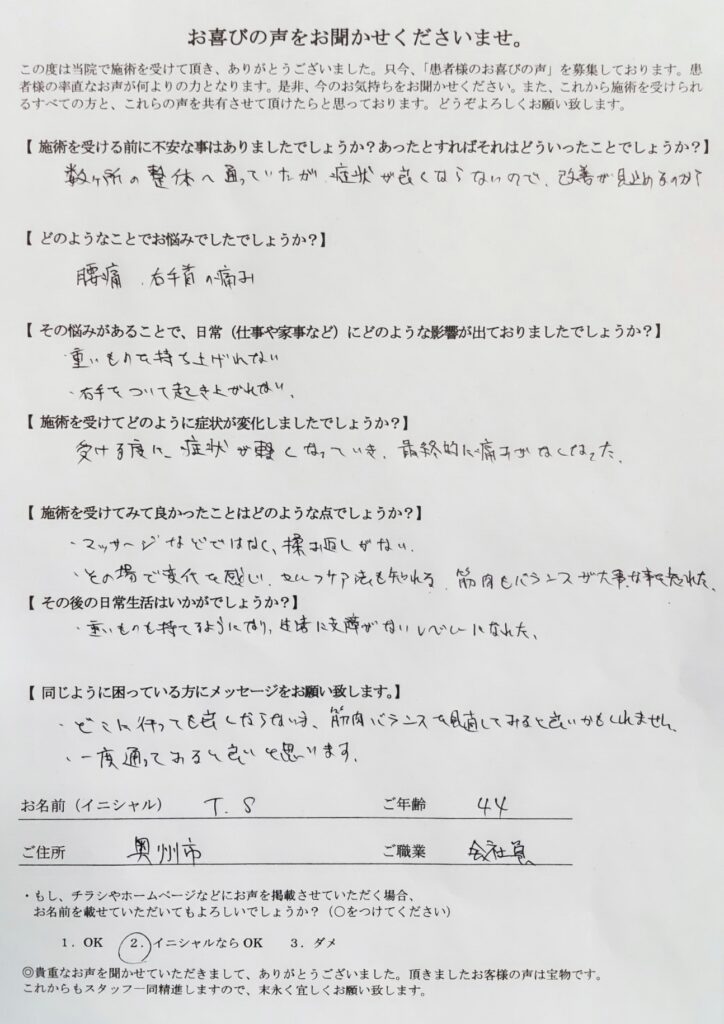 お喜びの声をお聞かせくださいませ。
この度は当院で施術を受けて頂き、ありがとうございました。只今、「患者様のお喜びの声」を募集しております。患
者様の率直なお声が何よりの力となります。是非、今のお気持ちをお聞かせください。また、これから施術を受けられ
るすべての方と、これらの声を共有させて頂けたらと思っております。どうぞよろしくお願い致します。
【 施術を受ける前に不安な事はありましたでしょうか？あったとすればそれはどういったことでしょうか？】
数ヶ所の整体へ通っていたが、症状が良くならないので、改善が見込めるのか？
【 どのようなことでお悩みでしたでしょうか？】
腰痛、右手首の痛み
【 その悩みがあることで、日常（仕事や家事など）にどのような影響が出ておりましたでしょうか？】
・重いものを持ち上げれない
・右手をついて起き上がれない。
【 施術を受けてどのように症状が変化しましたでしょうか？】
受ける度に、症状が軽くなっていき、最終的に痛みがなくなった。
【 施術を受けてみて良かったことはどのような点でしょうか？】
・マッサージなどではなく、揉み返しがない。
・その場で変化を感じ、セルフケア法も知れる。筋肉もバランスが大事な事を知れた。
【 その後の日常生活はいかがでしょうか？】
・重いものも持てるようになり、生活に支障がないレベルになれた。
【 同じように困っている方にメッセージをお願い致します。】
・どこに行っても良くならない方、筋肉バランスを見直してみると良いかもしれません。
・一度通ってみると良いと思います。
お名前（イニシャル） T. S ご年齢 44
ご住所 奥州市 ご職業 会社員
・もし、チラシやホームページなどにお声を掲載させていただく場合、
お名前を載せていただいてもよろしいでしょうか？（○をつけてください）
1．OK 2．イニシャルなら OK 3．ダメ
◎貴重なお声を聞かせていただきまして、ありがとうございました。頂きましたお客様の声は宝物です。
これからもスタッフ一同精進しますので、末永く宜しくお願い致します。